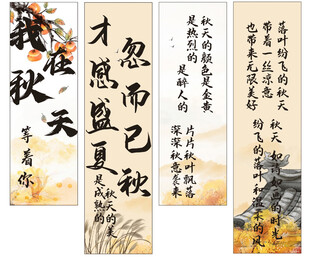 我在秋天
等着你
才感盛夏
忽而已秋
秋天的美
是成熟的
秋天的颜色是金黄
是热烈的
是醉人的
片片秋叶飘落
深深秋意袭来
落叶纷飞的秋天
带着一丝凉意
也带来无限美好
秋天 如诗如画的时光
纷飞的落叶和温柔的风